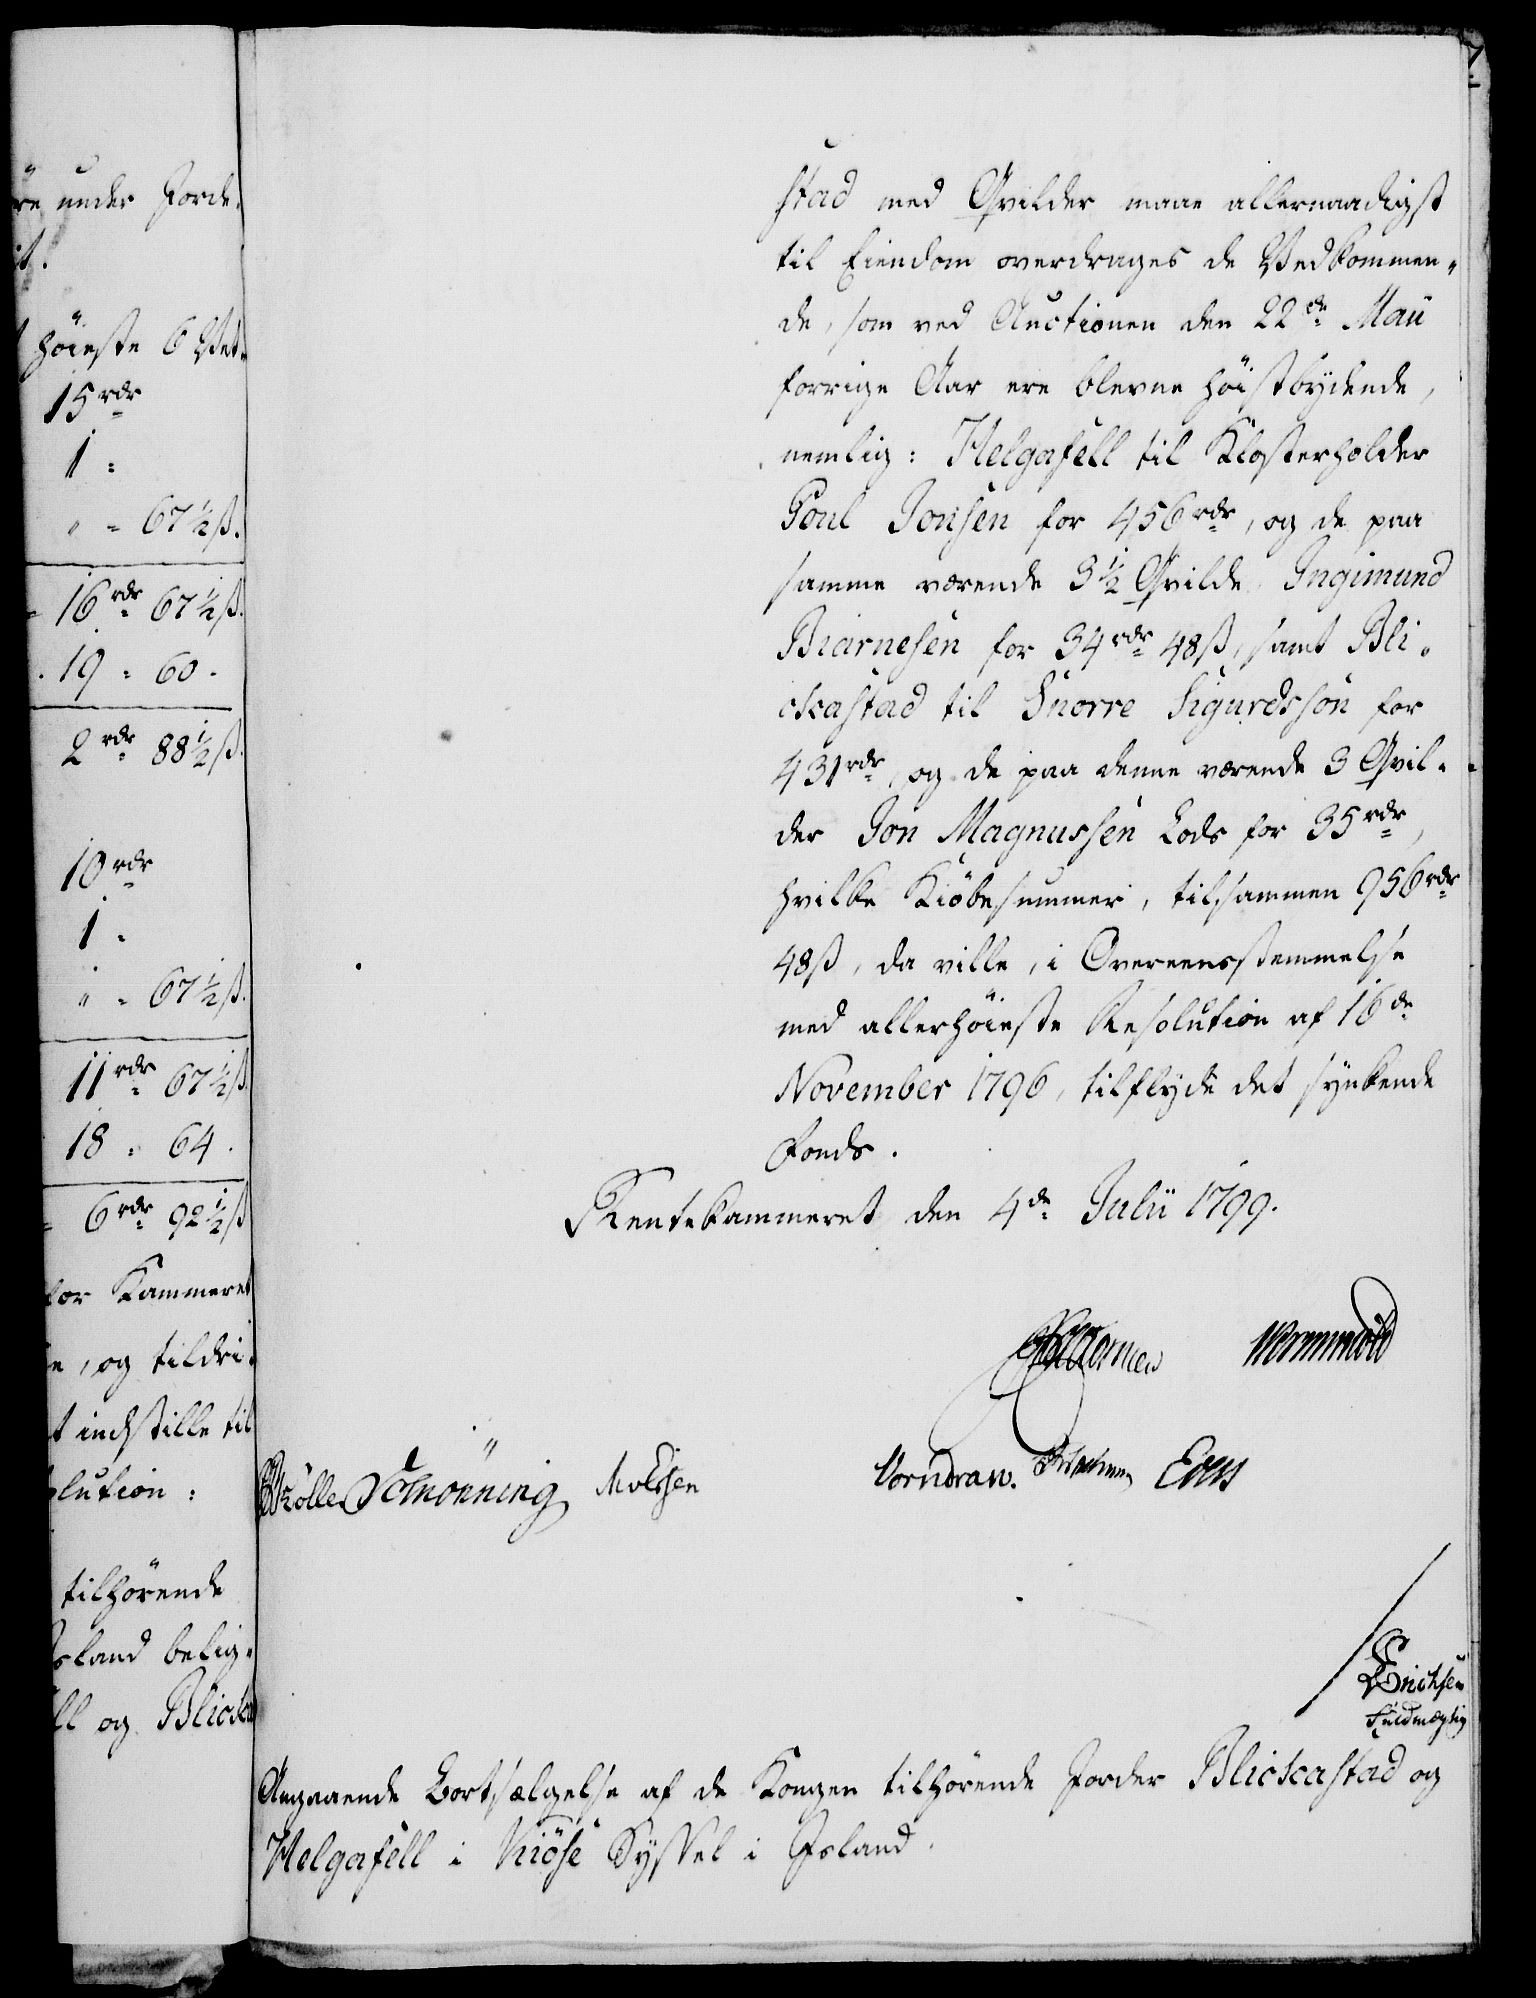 re under Jorde-
it.
höieste 6 Vet-
15 rdr
1 "
" " 67½ ß.
16 rdr 67½ ß.
19 " 60 "
2 rdr 88½ ß.
10 rdr
1 "
" " 67½ ß.
11 rdr 67½ ß
18 " 64 "
6 rdr 92½ ß
for Kammeret
e, og tildri-
t indstille til
olution:
tilhörende
Island belig-
ll og Blicka
stad med Qvilder maae allernaadigst
til Eiendom overdrages de Vedkommen-
de, som ved Auctionen den 22de Maii
forrige Aar ere blevne höistbydende,
nemlig: Helgafell til Klosterholder
Poul Jonsen for 456 rdr, og de paa
samme værende 3½ Qvilde Ingimund
Biarnesen for 34 rdr 48 ß, samt Bli-
ckastad til Snorre Sigurdsson for
431 rdr, og de paa denne værende 3 Qvil-
der Jon Magnussen Lods for 35 rdr,
hvilke Kiöbesummer, tilsammen 956 rdr
48 ß, da ville, i Overeensstemmelse
med allerhöieste Resolution af 16de
November 1796, tilflyde det synkende
Fonds.
Rentekammeret den 4de Julii 1799.
Wormskiold
Schönning Vorndran.
Erichsen
Fuldmægtig
Angaaende Bortsælgelse af de Kongen tilhörende Jorder Blickastad og
Helgafell i Kiöse Syssel i Island.